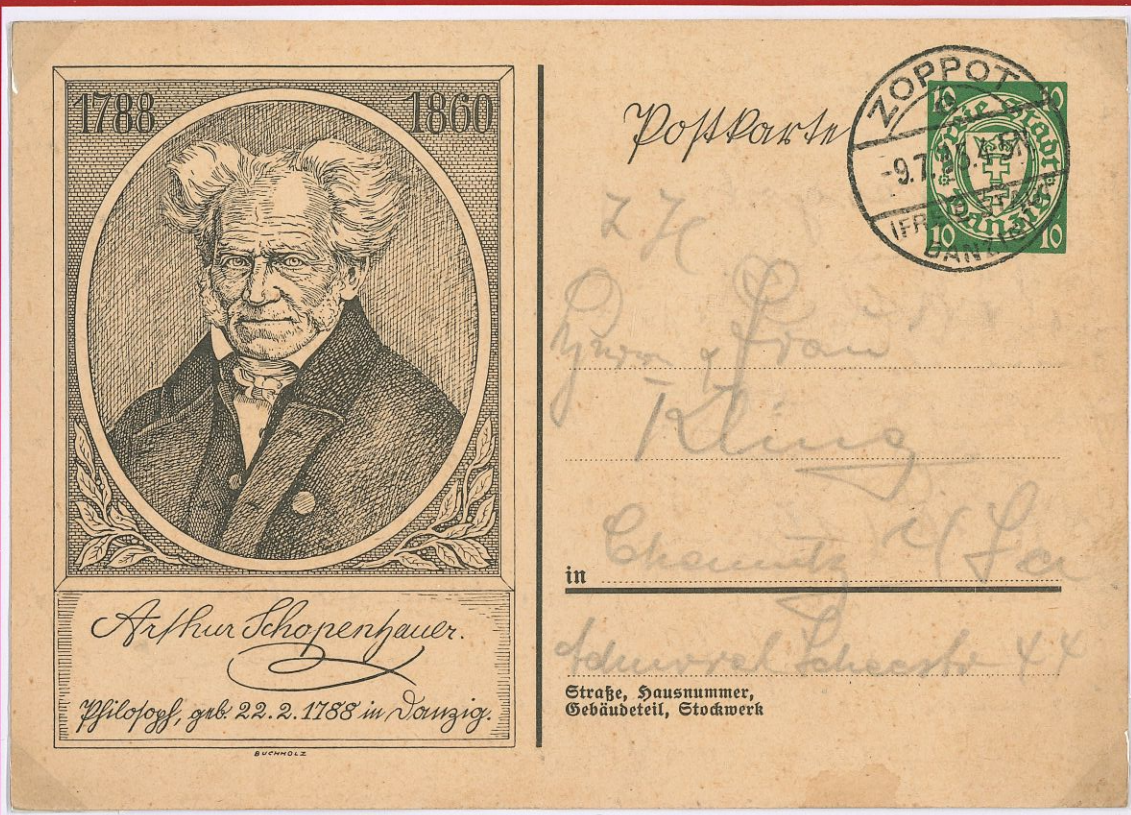 1788 1860
Arthur Schopenhauer.
Philosoph, geb. 22.2.1788 in Danzig.
BUCHHOLZ
Postkarte
ZOPPOT
-9.7.
DANZIG
10 10
Freie Stadt
Danzig
10 10
Herrn & Frau
Kling
in Chemnitz i/Sa
Admiral Scheerstr 44
Straße, Hausnummer,
Gebäudeteil, Stockwerk